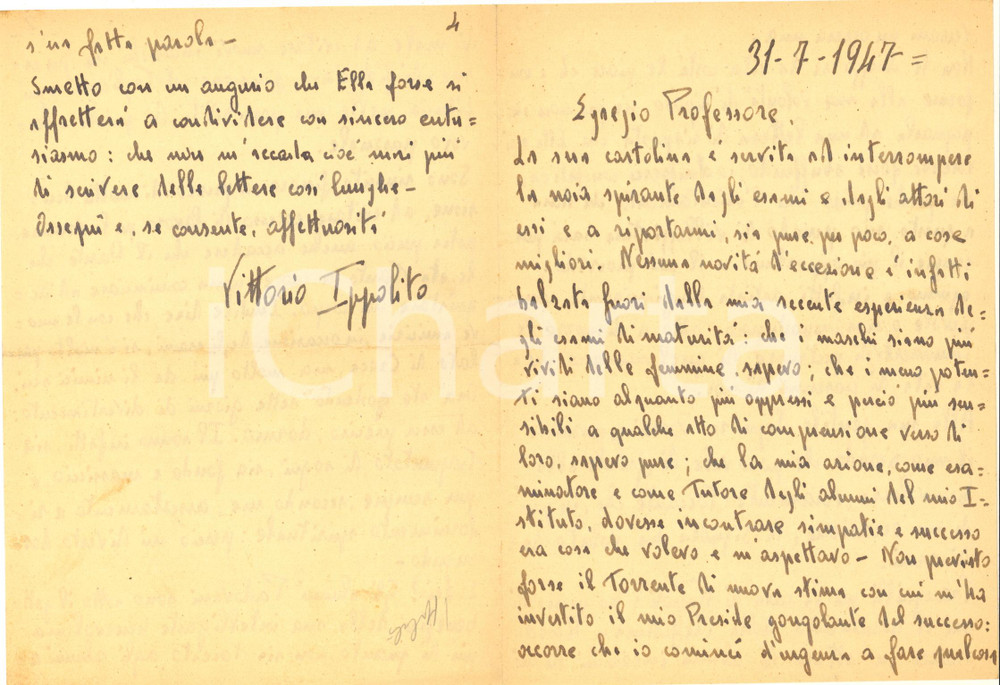 4
s'era fatta parola –
Smetto con un augurio che Ella forse si
affretterà a condividere con sincero entu=
siasmo: che non m'accada cioè mai più
di scrivere delle lettere così lunghe –
Ossequi e, se consente, affettuosità
Vittorio Ippolito
31-7-1947 =
Egregio Professore,
La sua cartolina è servita ad interrompere
la noia spirante dagli esami e dagli attori di
essi e a riportarmi, sia pure per poco, a cose
migliori. Nessuna novità d'eccezione è infatti
balzata fuori dalla mia recente esperienza de=
gli esami di maturità: che i maschi siano più
vividi delle femmine, sapevo; che i meno poten=
ti siano alquanto più oppressi e perciò più sen=
sibili a qualche atto di comprensione verso di
loro, sapevo pure; che la mia azione, come esa=
minatore e come Tutore degli alunni del mio I=
stituto, dovesse incontrare simpatie e successo
era cosa che volevo e m'aspettavo – Non previsto
forse il Torrente di nuova stima con cui m'ha
investito il mio Preside gongolante del successo:
occorre che io cominci d'urgenza a fare qualcosa
iCharta